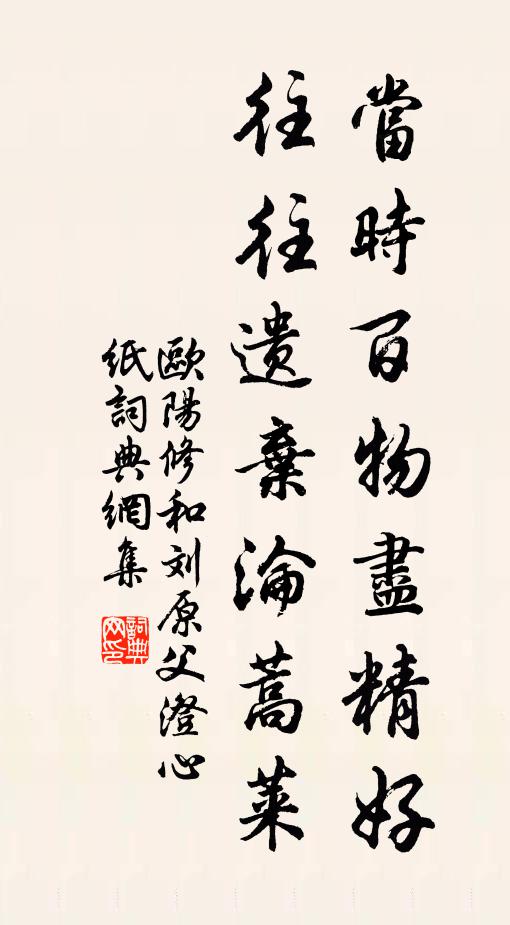 當時百物盡精好
往往遺棄淪蒿萊
歐陽修和刘原父澄心
紙詞典網集
詞典
网印